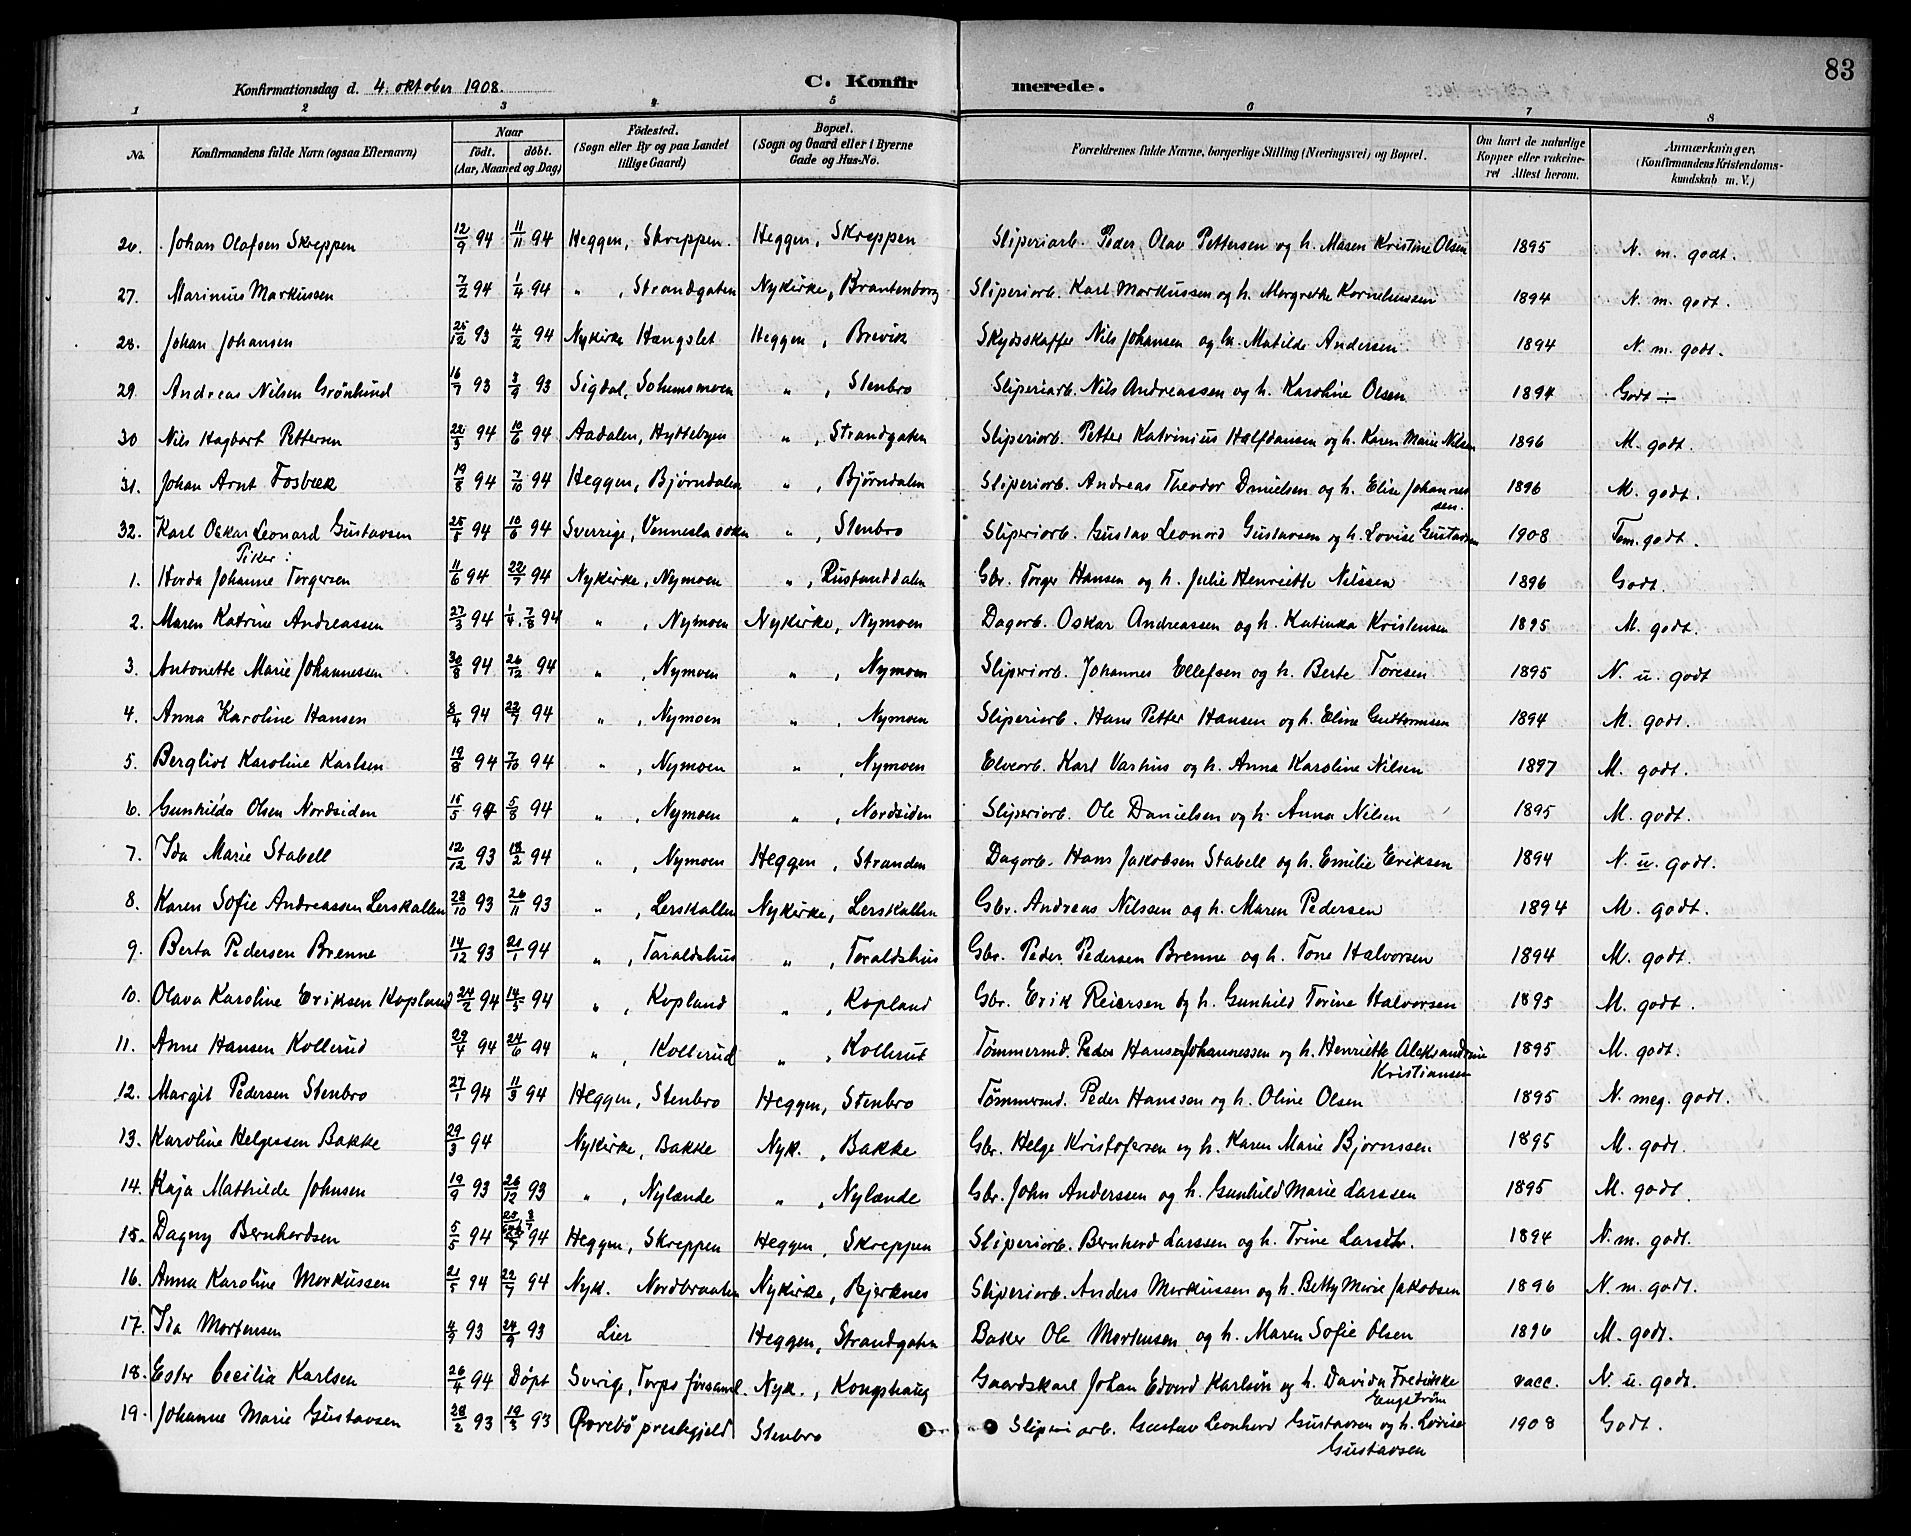 83
Konfirmationsdag d. 4. oktober 1908. C. Konfirmerede.
1 2 3 4 5 6 7 8
No. Konfirmandens fulde Navn (ogsaa Efternavn) Naar født. døbt. (Aar, Maaned og Dag) Fødested. (Sogn eller By og paa Landet tillige Gaard) Bopæl. (Sogn og Gaard eller i Byerne Gade og Hus-No. Forældrenes fulde Navne, borgerlige Stilling (Næringsvei) og Bopæl. Om havt de naturlige Kopper eller vakcineret Attest herom. Anmærkninger. (Konfirmandens Kristendomskundskab m. V.)
26. Johan Olafsen Skreppen 12/9 94 11/11 94 Heggen, Skreppen. Heggen, Skreppen Sliperiarb. Peder Olav Pettersen og h. Maren Kristine Olsen 1895 N. m. godt.
27. Marinius Markussen 7/2 94 1/4 94 " , Strandgaten Nykirke, Brantenborg Sliperiarb. Karl Markussen og h. Margrethe Korneliussen 1894 N. m. godt.
28. Johan Johansen 25/12 93 4/2 94 Nykirke Hængslet Heggen, Brevik Skydsskaffer Nils Johansen og h. Matilde Andersen 1894 N. m. godt.
29. Andreas Nilsen Grønlund 16/7 93 3/9 93 Sigdal, Sohumsmoen " , Stenbro Sliperiarb. Nils Andreassen og h. Karoline Olsen 1894 Godt ÷
30 Nils Hagbart Pettersen 22/3 94 10/6 94 Aadalen, Hyttebyen " , Strandgaten Sliperiarb. Petter Katrinius Halfdansen og h. Karen Marie Nilsen 1896 M. godt.
31. Johan Arnt Fosbæk 19/8 94 7/10 94 Heggen, Bjørndalen " , Bjørndalen Sliperiarb. Andreas Theodor Danielsen og h. Elise Johannes
sen. 1896 M. godt.
32. Karl Oskar Leonard Gustavsen 25/5 94 10/6 94 Sverrige, Vennesla sokn " , Stenbro Sliperiarb. Gustav Leonard Gustavsen og h. Lovise Gustavsen 1908 Tem. godt.
Piker:
1. Herda Johanne Torgersen 11/6 94 22/7 94 Nykirke, Nymoen " , Rustanddalen Gbr. Torger Hansen og h. Julie Henriette Nilssen 1896 Godt.
2. Maren Katrine Andreassen 27/3 94 1/4. 7/8 94 " , Nymoen Nykirke, Nymoen Dagarb. Oskar Andreassen og h. Katinka Kristensen 1895 M. godt.
3. Antonette Marie Johannessen 30/8 94 26/12 94 " , Nymoen " , Nymoen Sliperiarb. Johannes Ellefsen og h. Berte Toresen 1895 N. u. godt
4. Anna Karoline Hansen 8/4 94 22/7 94 " , Nymoen " , Nymoen Sliperiarb. Hans Petter Hansen og h. Eline Guttormsen 1894 M. godt.
5. Bergliot Karoline Karlsen 19/8 94 7/10 94 " , Nymoen " , Nymoen Elvearb. Karl Varhus og h. Anna Karoline Nilsen 1897 M. godt.
6. Gunhilda Olsen Nordsiden 15/5 94 5/8 94 " , Nymoen " , Nordsiden Sliperiarb. Ole Danielsen og h. Anna Nilsen 1895 M. godt.
7. Ida Marie Stabell 12/12 93 18/2 94 " , Nymoen Heggen, Stranden Dagarb. Hans Jakobsen Stabell og h. Emilie Eriksen 1894 N. u. godt.
8. Karen Sofie Andreassen Lerskallen 28/10 93 26/11 93 " , Lerskallen Nykirke, Lerskallen Gbr. Andreas Nilssen og h. Maren Pedersen 1894 M. godt.
9. Berta Pedersen Brenne 14/12 93 21/1 94 " , Taraldshus " , Taraldshus Gbr. Peder Pedersen Brenne og h. Tone Halvorsen 1894 M. godt.
10. Olava Karoline Eriksen Kopland 24/2 94 14/5 94 " , Kopland " , Kopland Gbr. Erik Reiersen og h. Gunhild Torine Halvorsen 1895 M. godt.
11. Anne Hansen Kollerud 29/4 94 24/6 94 " , Kollerud " , Kollerud Tømmermd. Peder Hansen Johannessen og h. Henriette Aleksandrine
Kristiansen 1895 M. godt.
12. Margit Pedersen Stenbro 27/1 94 11/3 94 Heggen, Stenbro Heggen, Stenbro Tømmermd. Peder Hanssen og h. Oline Olsen 1895 N. meg. godt.
13. Karoline Helgessen Bakke 29/3 94 Nykirke, Bakke Nyk. , Bakke Gbr. Helge Kristofersen og h. Karen Marie Bjørnssen 1895 M. godt.
14. Kaja Mathilde Johnsen 19/9 93 26/12 93 " , Nylænde " , Nylænde Gbr. John Anderssen og h. Gunhild Marie Larssen 1895 M. godt.
15. Dagny Bernhardsen 5/5 94 94 Heggen, Skreppen Heggen, Skreppen Sliperiarb. Bernhard Larssen og h. Trine 1894 N. m. godt.
16. Anna Karoline Markussen 21/5 94 22/7 94 Nyk. Nordbraaten Nykirke, Bjerknes Sliperiarb. Anders Markussen og h. Betty Marie Jakobsen 1896 N. m. godt.
17. Ida Mortensen 4/9 93 24/9 93 Lier Heggen, Strandgaten Baker Ole Mortensen og h. Maren Sofie Olsen 1896 M. godt.
18. Ester Cecilia Karlsen 26/4 94 Døpt Sverige, Torps forsaml. Nyk., Kongshaug Gaardskarl Johan Edvard Karlsøn og h. Davida Fredrikke
Engstrøm vacc. N. u. godt.
19. Johanne Marie Gustavsen 28/2 93 19/3 93 Øvrebø prestegjeld Stenbro Sliperi arb. Gustav Leonhard Gustavsen og h. Lovise
Gustavsen 1908 Godt.